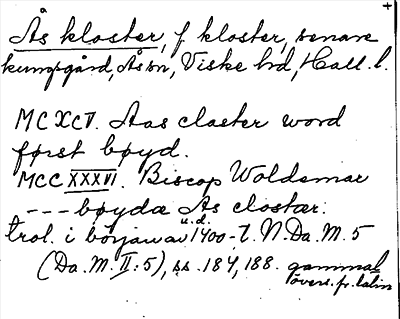 Ås kloster, f kloster, senare
kungsgård, Ås sn, Viske hd, Hall. l.
MCXCV. Aas closter word
først bøyd.
MCCXXXVI. Biscop Woldemar
--- bøydæ As closter.
u.d.
trol. i början av 1400-t. N.Da.M. 5
(Da.M.II:5), ss. 187, 188. gammal
övers. fr. latin